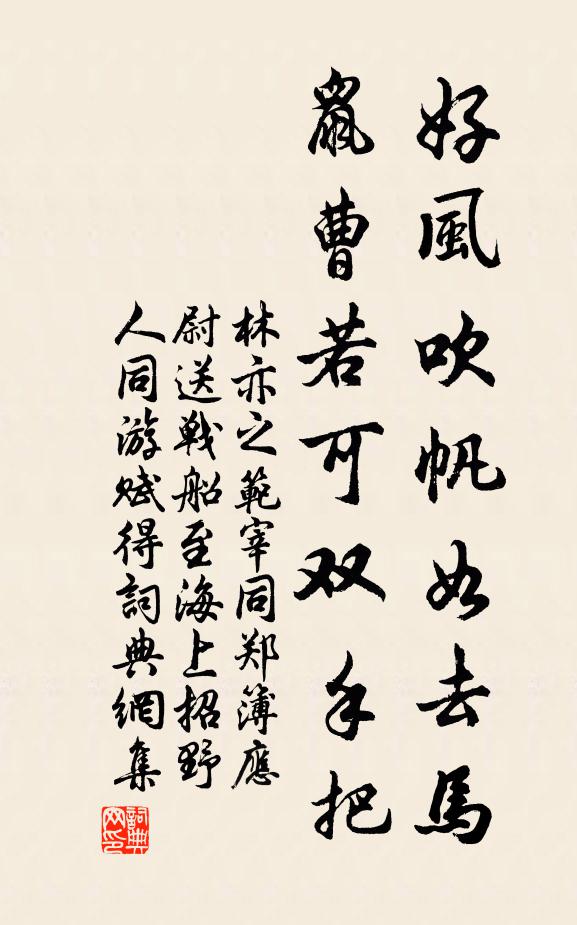 好風吹帆如去馬
鼠曹若可双手把
林亦之範宰同郑簿應
尉送戰船至海上招野
人同游賦得詞典網集
詞典
网印